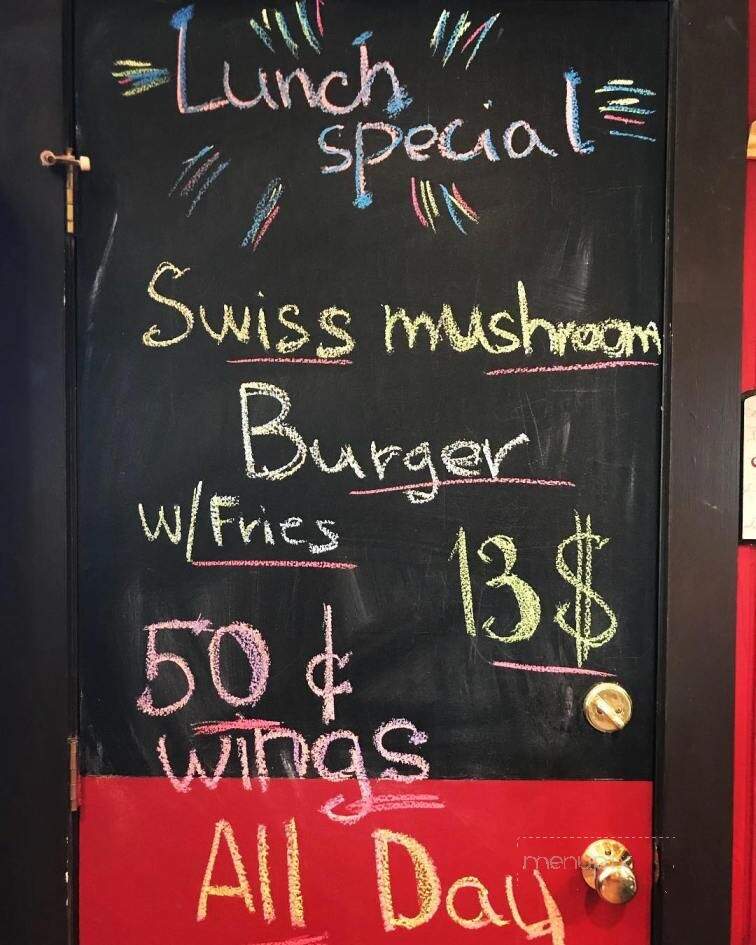 Lunch
special
Swiss mushroom
Burger
w/Fries
13$
50¢
wings
All Day